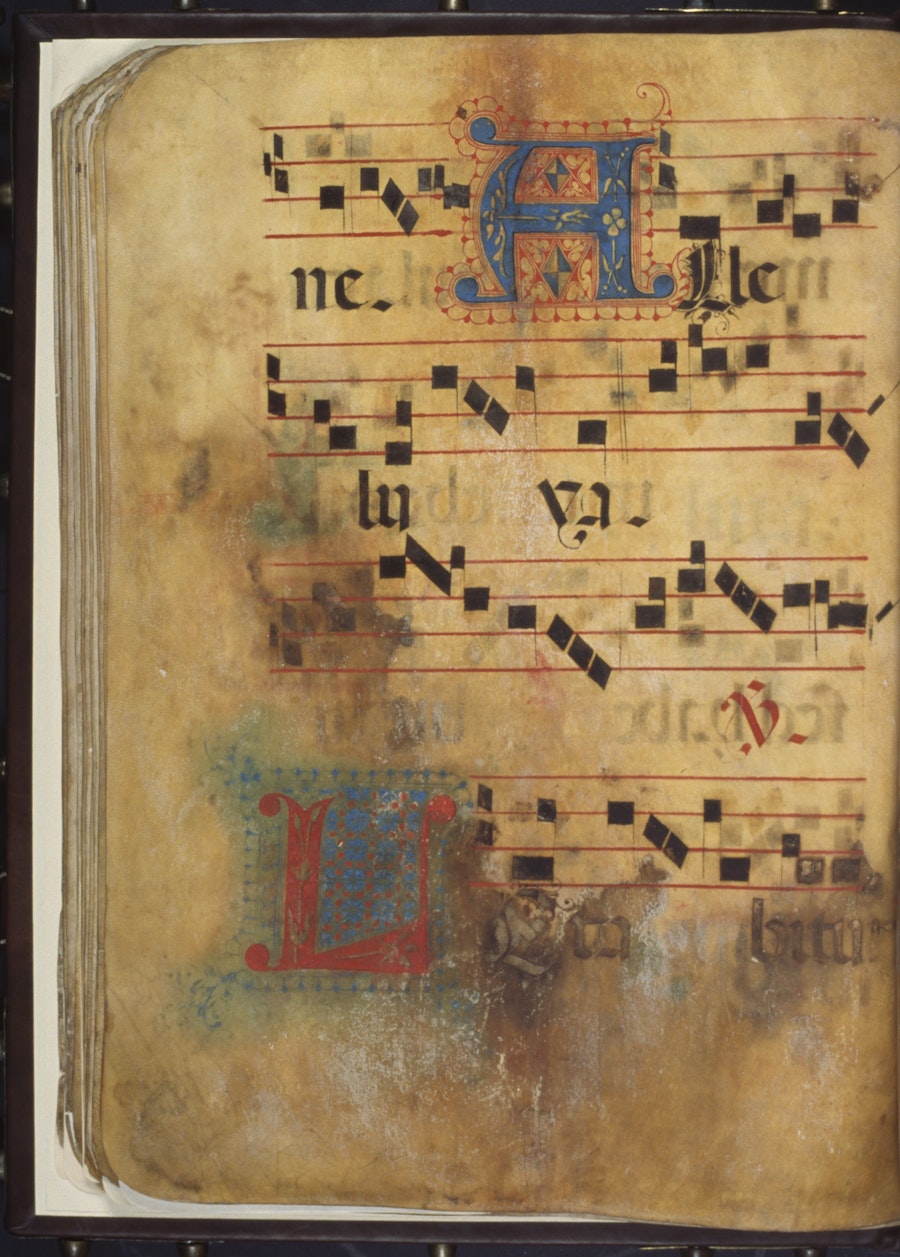 ne. ALle
lu ya.
℣.
LEta bitur